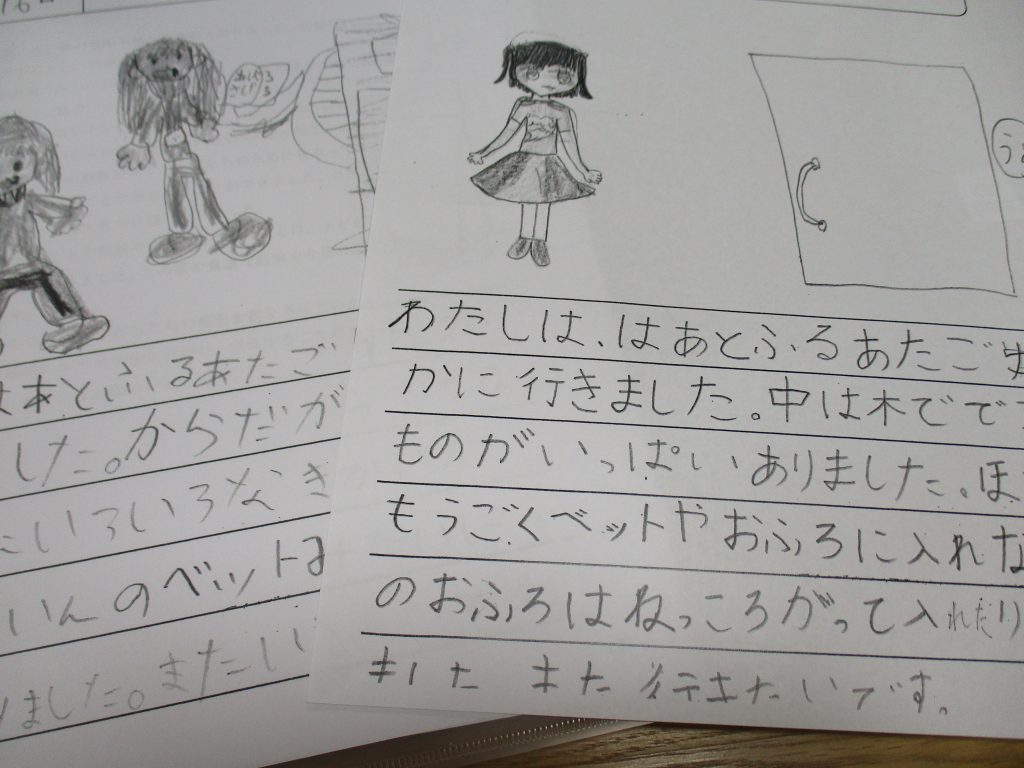 はあとふるあたご
した。からだが
いろいろなき
いんのベットは
ました。またい
わたしは、はあとふるあたご
かに行きました。中は木でで
ものがいっぱいありました。ほ
もうごくベットやおふろに入れな
のおふろはねっころがって入れたり
ました また行きたいです。